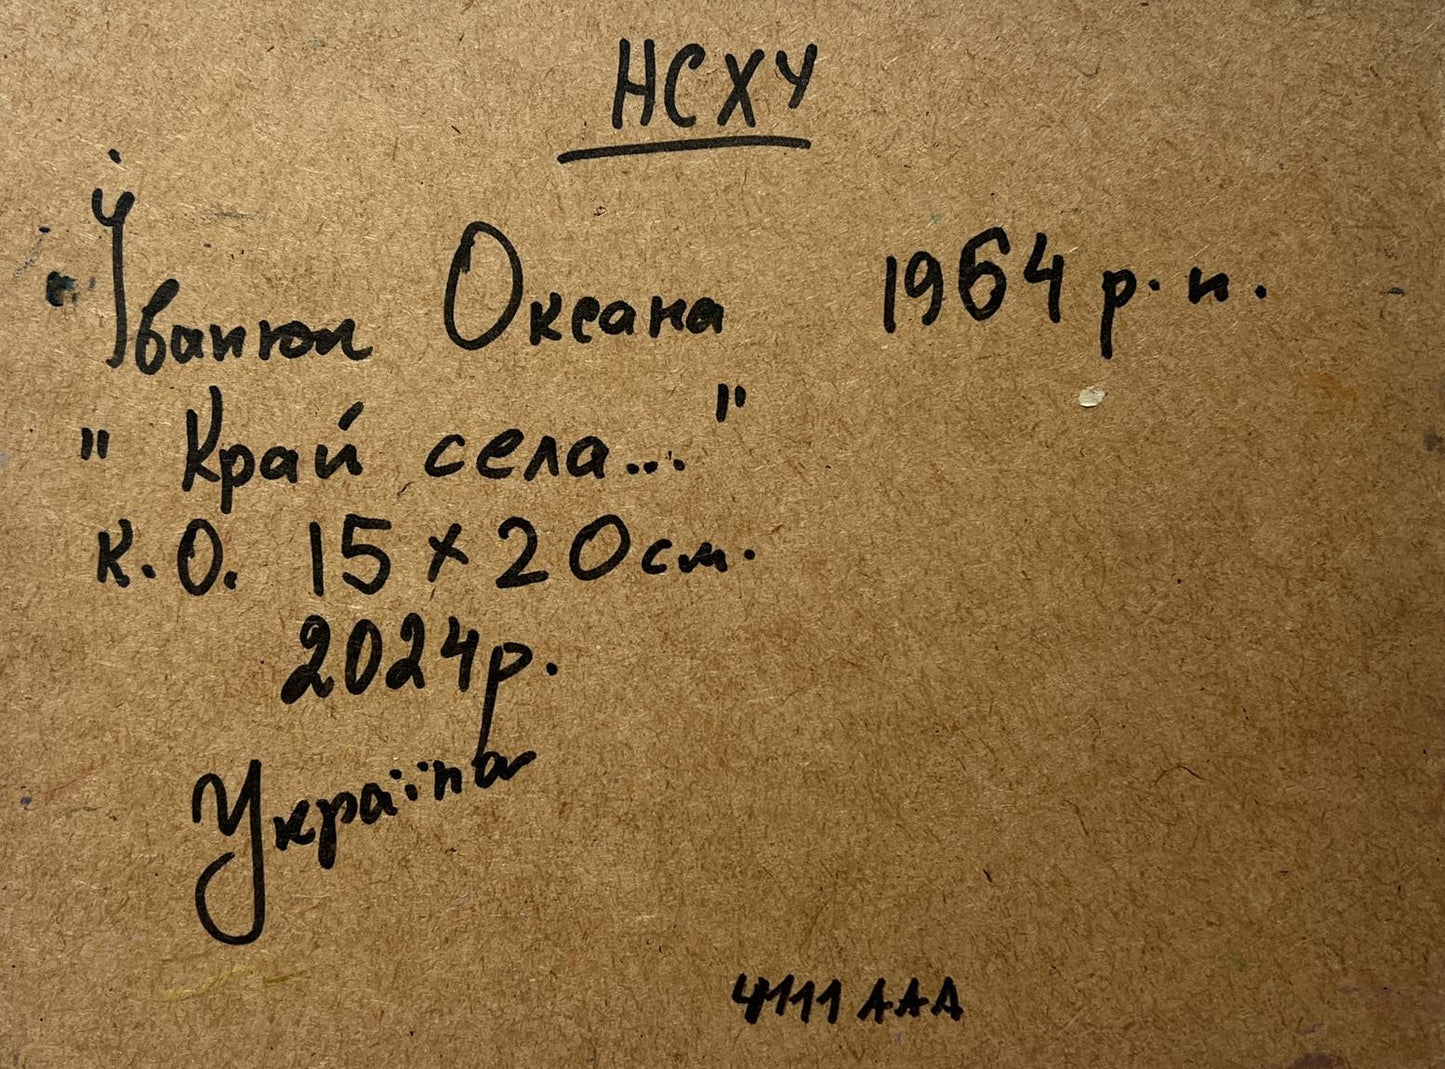 НСХУ
Іванюк Оксана 1964 р.н.
"Край села..."
к.О. 15×20см.
2024р.
Україна
4111 ААА